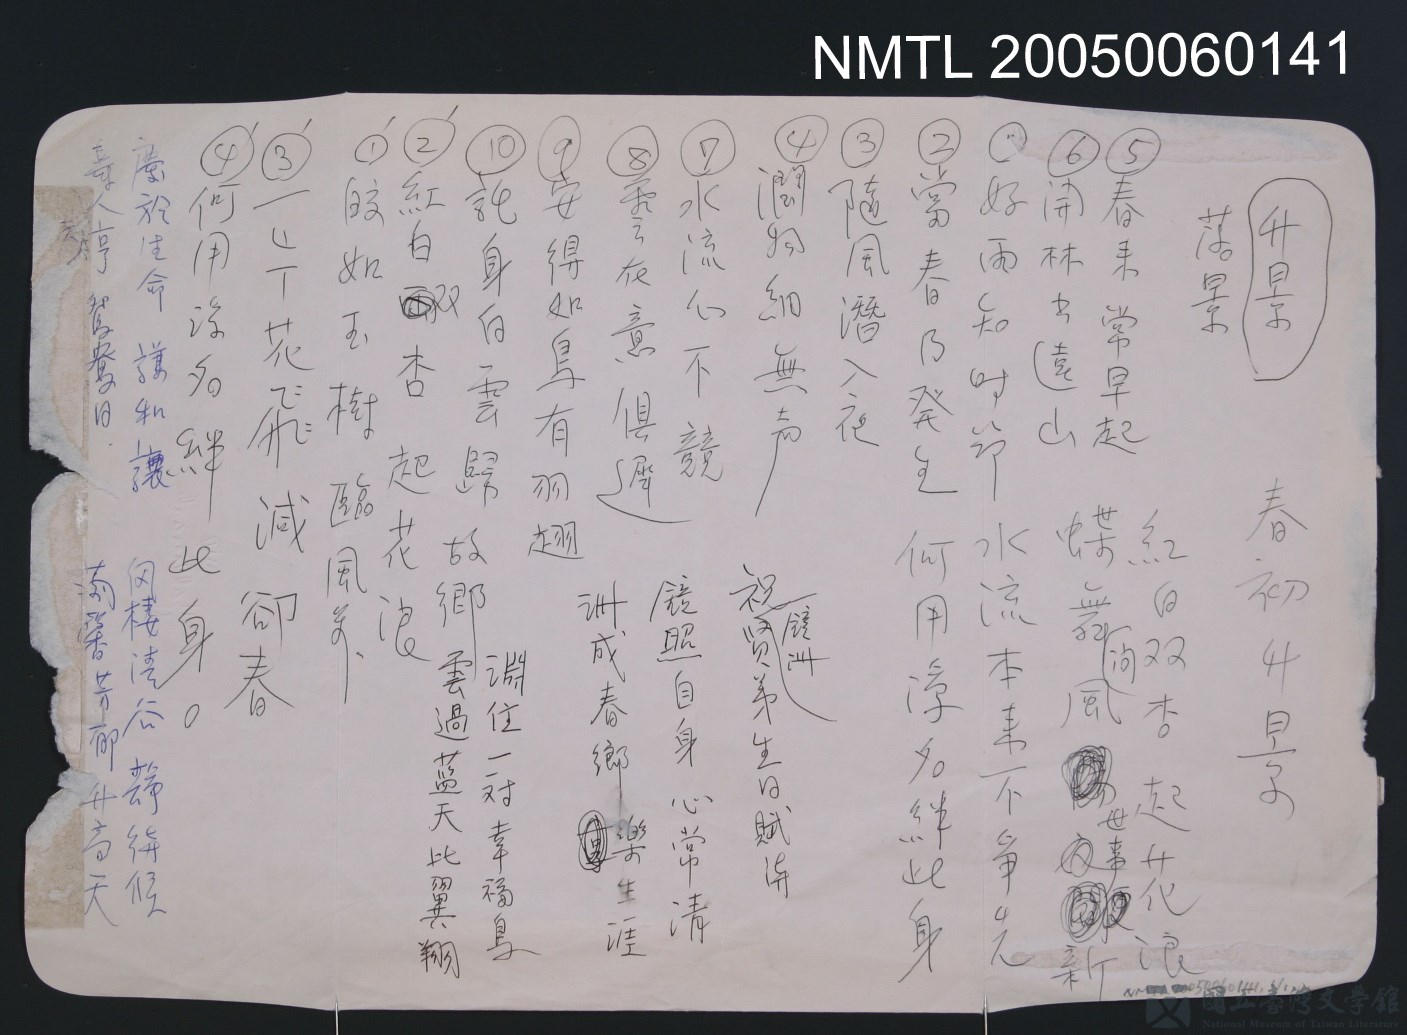 NMTL 20050060141
升景
落景
春初升景
⑤春来常早起
紅日双杏起升花浪
⑥開林出遠山
蝶舞向風世事新
①好雨知时節
水流本来不爭先
②當春乃發生
何用浮名絆此身
③隨風潛入夜
④潤物細無声
祝賢弟生日賦詩
鏡洲
⑦水流心不競
鏡照自身心常清
⑧雲在意俱遲
洲成春鄉樂生涯
⑨安得如鳥有羽翅
⑩託身白雲歸故鄉
淵住一对幸福鳥
雲過藍天比翼翔
②紅白双杏起花浪
①皎如玉樹臨風前
③一片花飛減卻春
④何用浮名絆此身。
慶於生命謙和讓
因棲清谷靜待候
壽人亨鴛鴦日.
蘭馨香芳郁升高天
國立臺灣文學館
National Museum of Taiwan Literature